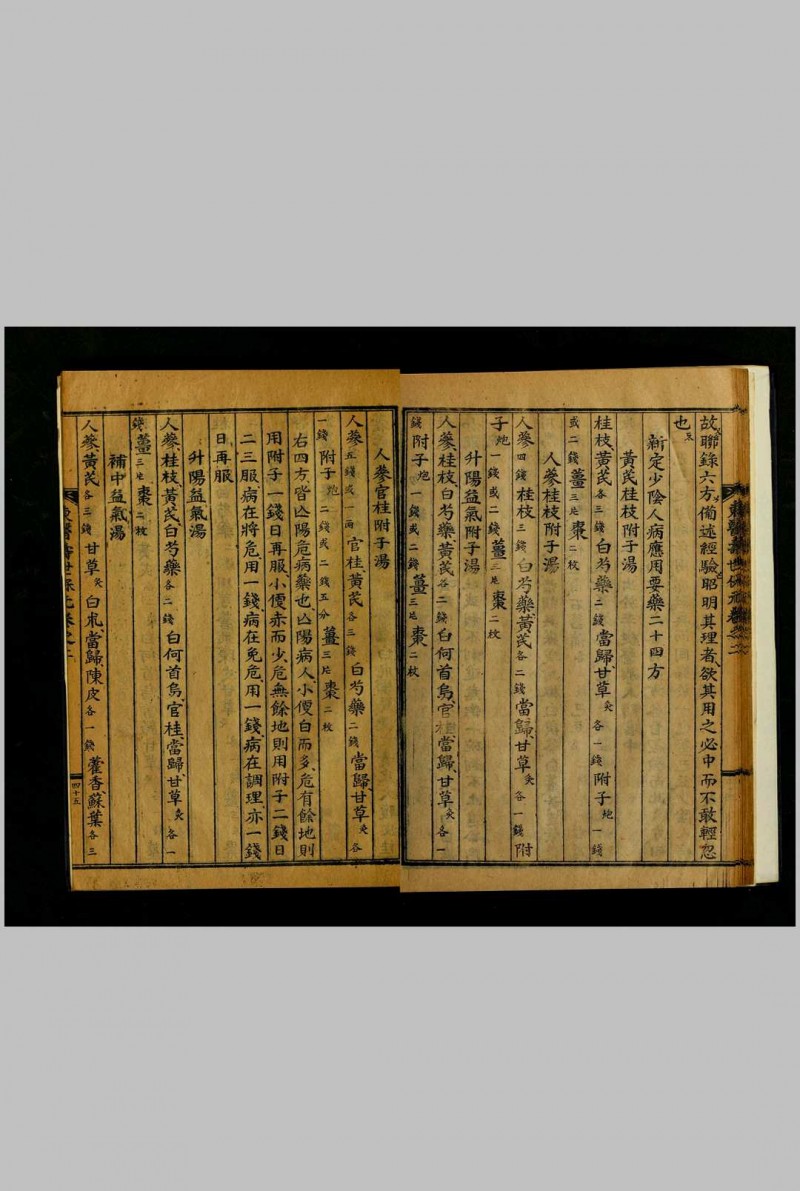 故聯錄六方備述經驗昭明其理者欲其用之必中而不敢輕忽
也
新定少陰人病應用要藥二十四方
黃芪桂枝附子湯
桂枝黃芪各三錢白芍藥二錢當歸甘草灸各一錢附子炮一錢
或二錢薑三片棗二枚
人參桂枝附子湯
人參四錢桂枝三錢白芍藥黃芪各二錢當歸甘草灸各一錢附
子炮一錢或二錢薑三片棗二枚
升陽益氣附子湯
人參桂枝白芍藥黃芪各二錢白何首烏官桂當歸甘草灸各一
錢附子炮一錢或二錢薑三片棗二枚
人參官桂附子湯
人參五錢或一兩官桂黃芪各三錢白芍藥二錢當歸甘草灸各
一錢附子炮二錢或二錢五分薑三片棗二枚
右四方皆亾陽危病藥也亾陽病人小便白而多危有餘地則
用附子一錢日再服小便赤而少危無餘地則用附子二錢日
二三服病在將危用一錢病在免危用一錢病在調理亦一錢
日再服
升陽益氣湯
人參桂枝黃芪白芍藥各二錢白何首烏官桂當歸甘草灸各一
錢薑三片棗二枚
補中益氣湯
人參黃芪各三錢甘草灸白朮當歸陳皮各一錢藿香蘇葉各三
四十五